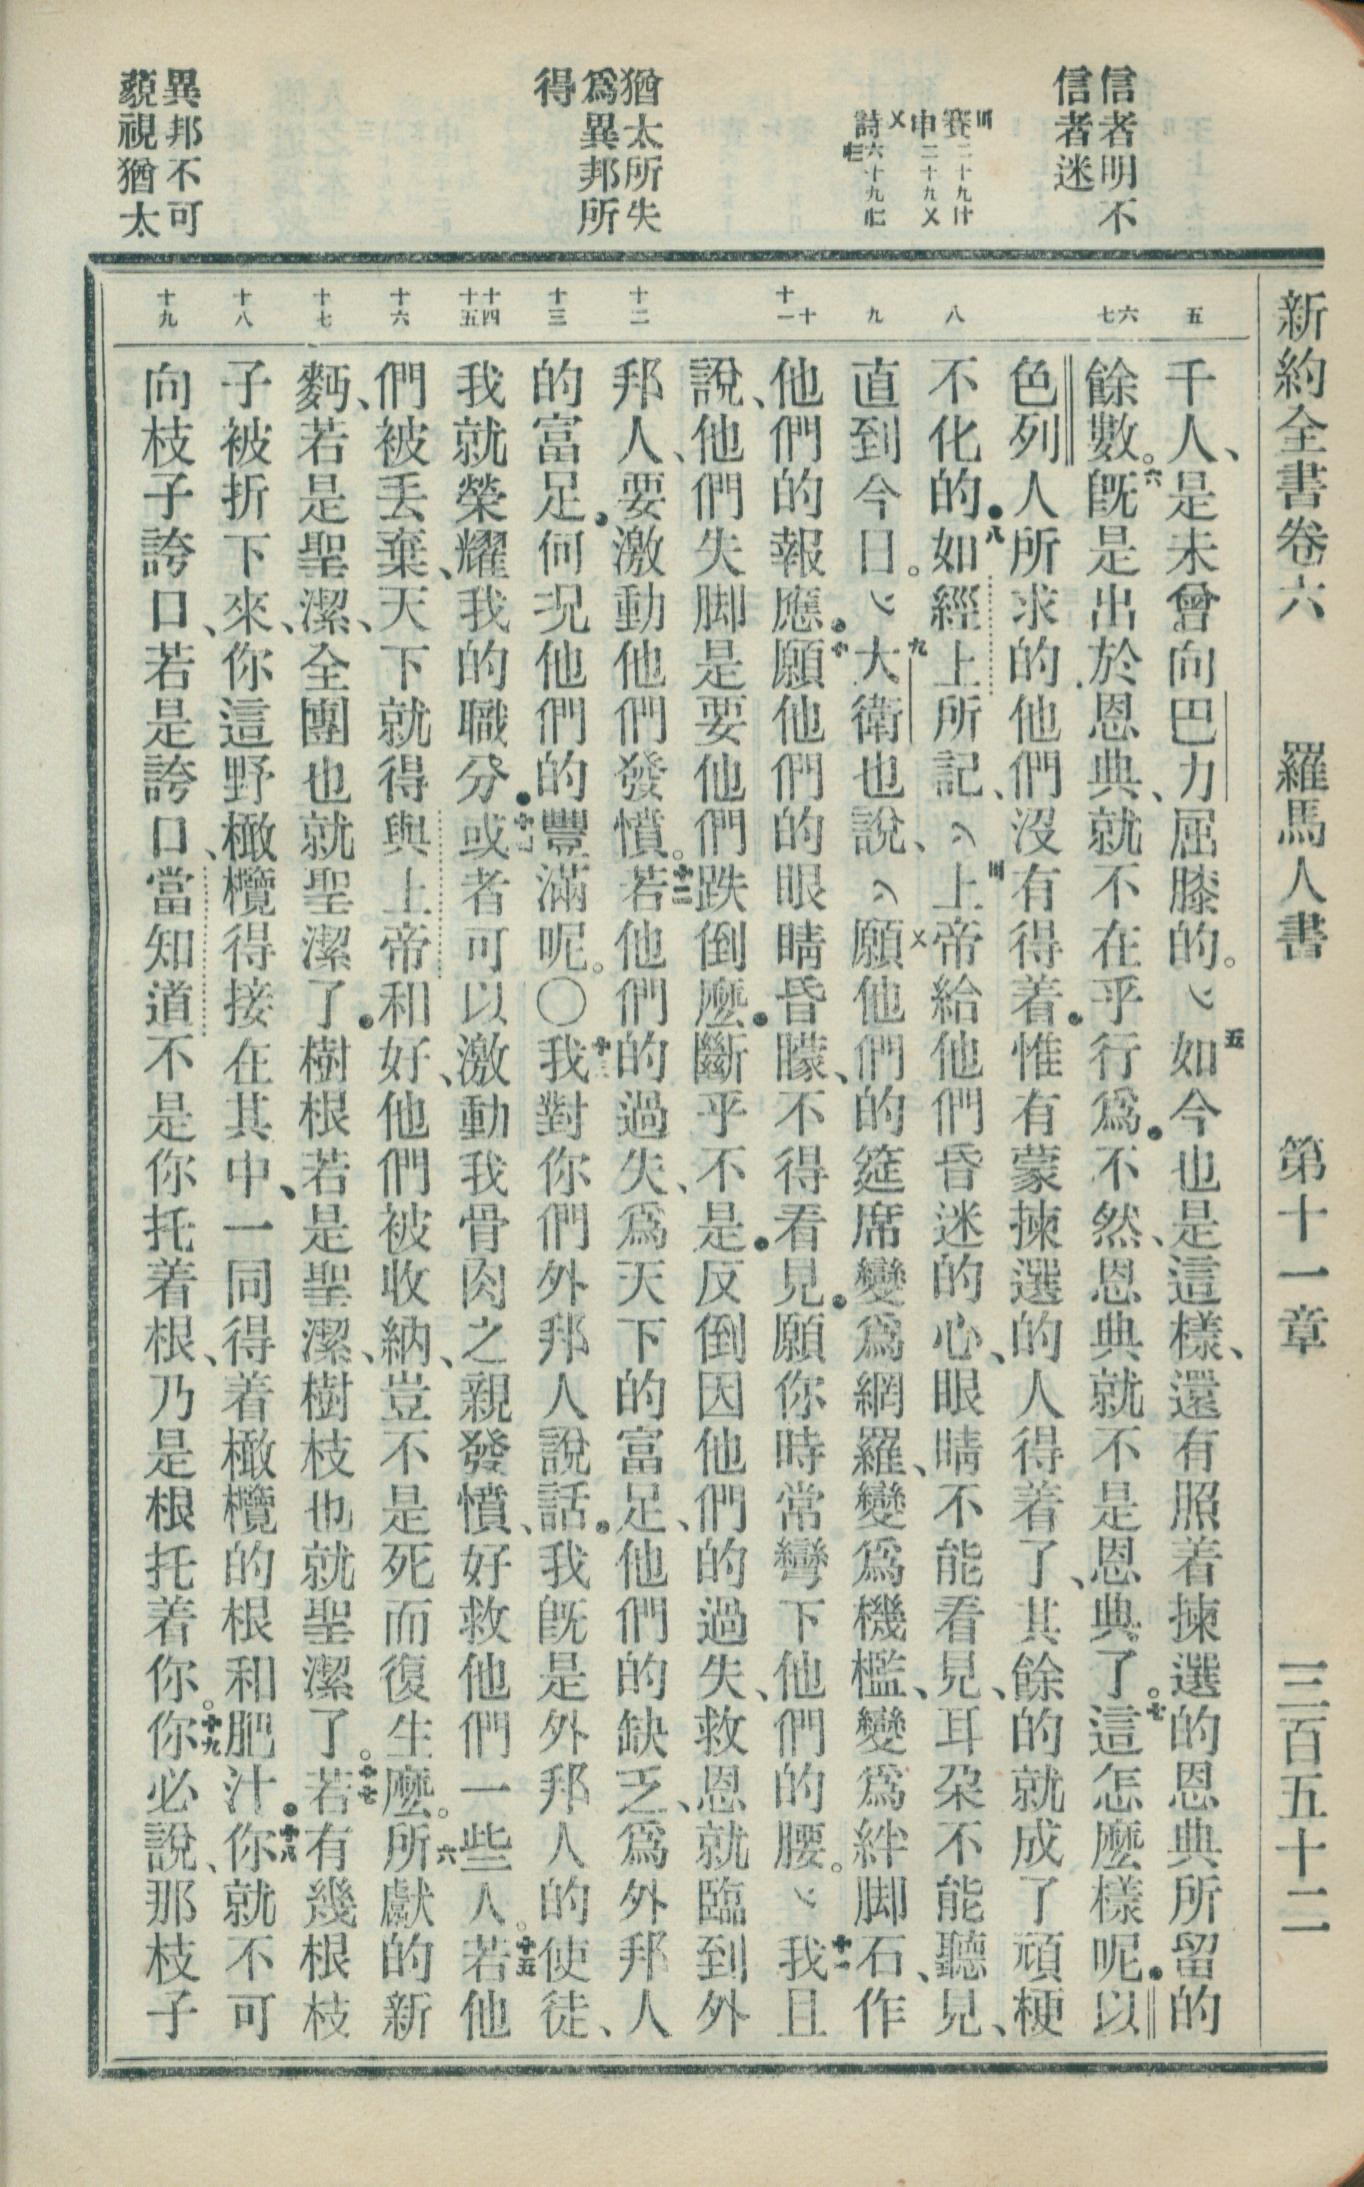 新約全書卷六　羅馬人書　第十一章　三百五十二
信者明不
信者迷
賽二十九〸
申二十九〤
詩六十九
猶太所失
爲異邦所
得
異邦不可
藐視猶太
五
六
七
八
九
十
十一
十二
十三
十四
十五
十六
十七
十八
十九
千人、是未曾向巴力屈膝的。五如今也是這樣、還有照着揀選的恩典所留的
餘數。六旣是出於恩典、就不在乎行爲．不然、恩典就不是恩典了。七這怎麼樣呢．以
色列人所求的他們沒有得着．惟有蒙揀選的人得着了、其餘的就成了頑梗
不化的．八如經上所記、上帝給他們昏迷的心、眼睛不能看見、耳朶不能聽見、
直到今日。九大衛也說、願他們的筵席變爲網羅、變爲機檻、變爲絆脚石、作
他們的報應．十願他們的眼睛昏矇、不得看見．願你時常彎下他們的腰。十一我且
說、他們失脚是要他們跌倒麼．斷乎不是．反倒因他們的過失、救恩就臨到外
邦人、要激動他們發憤。十二若他們的過失、爲天下的富足、他們的缺乏、爲外邦人
的富足．何况他們的豐滿呢。〇十三我對你們外邦人說話．我旣是外邦人的使徒、
我就榮耀我的職分．十四或者可以激動我骨肉之親發憤、好救他們一些人。十五若他
們被丟棄、天下就得與上帝和好、他們被收納、豈不是死而復生麼。十六所獻的新
麪、若是聖潔、全團也就聖潔了．樹根若是聖潔、樹枝也就聖潔了。十七若有幾根枝
子被折下來、你這野橄欖得接在其中、一同得着橄欖的根和肥汁．十八你就不可
向枝子誇口、若是誇口、當知道不是你托着根、乃是根托着你。十九你必說、那枝子